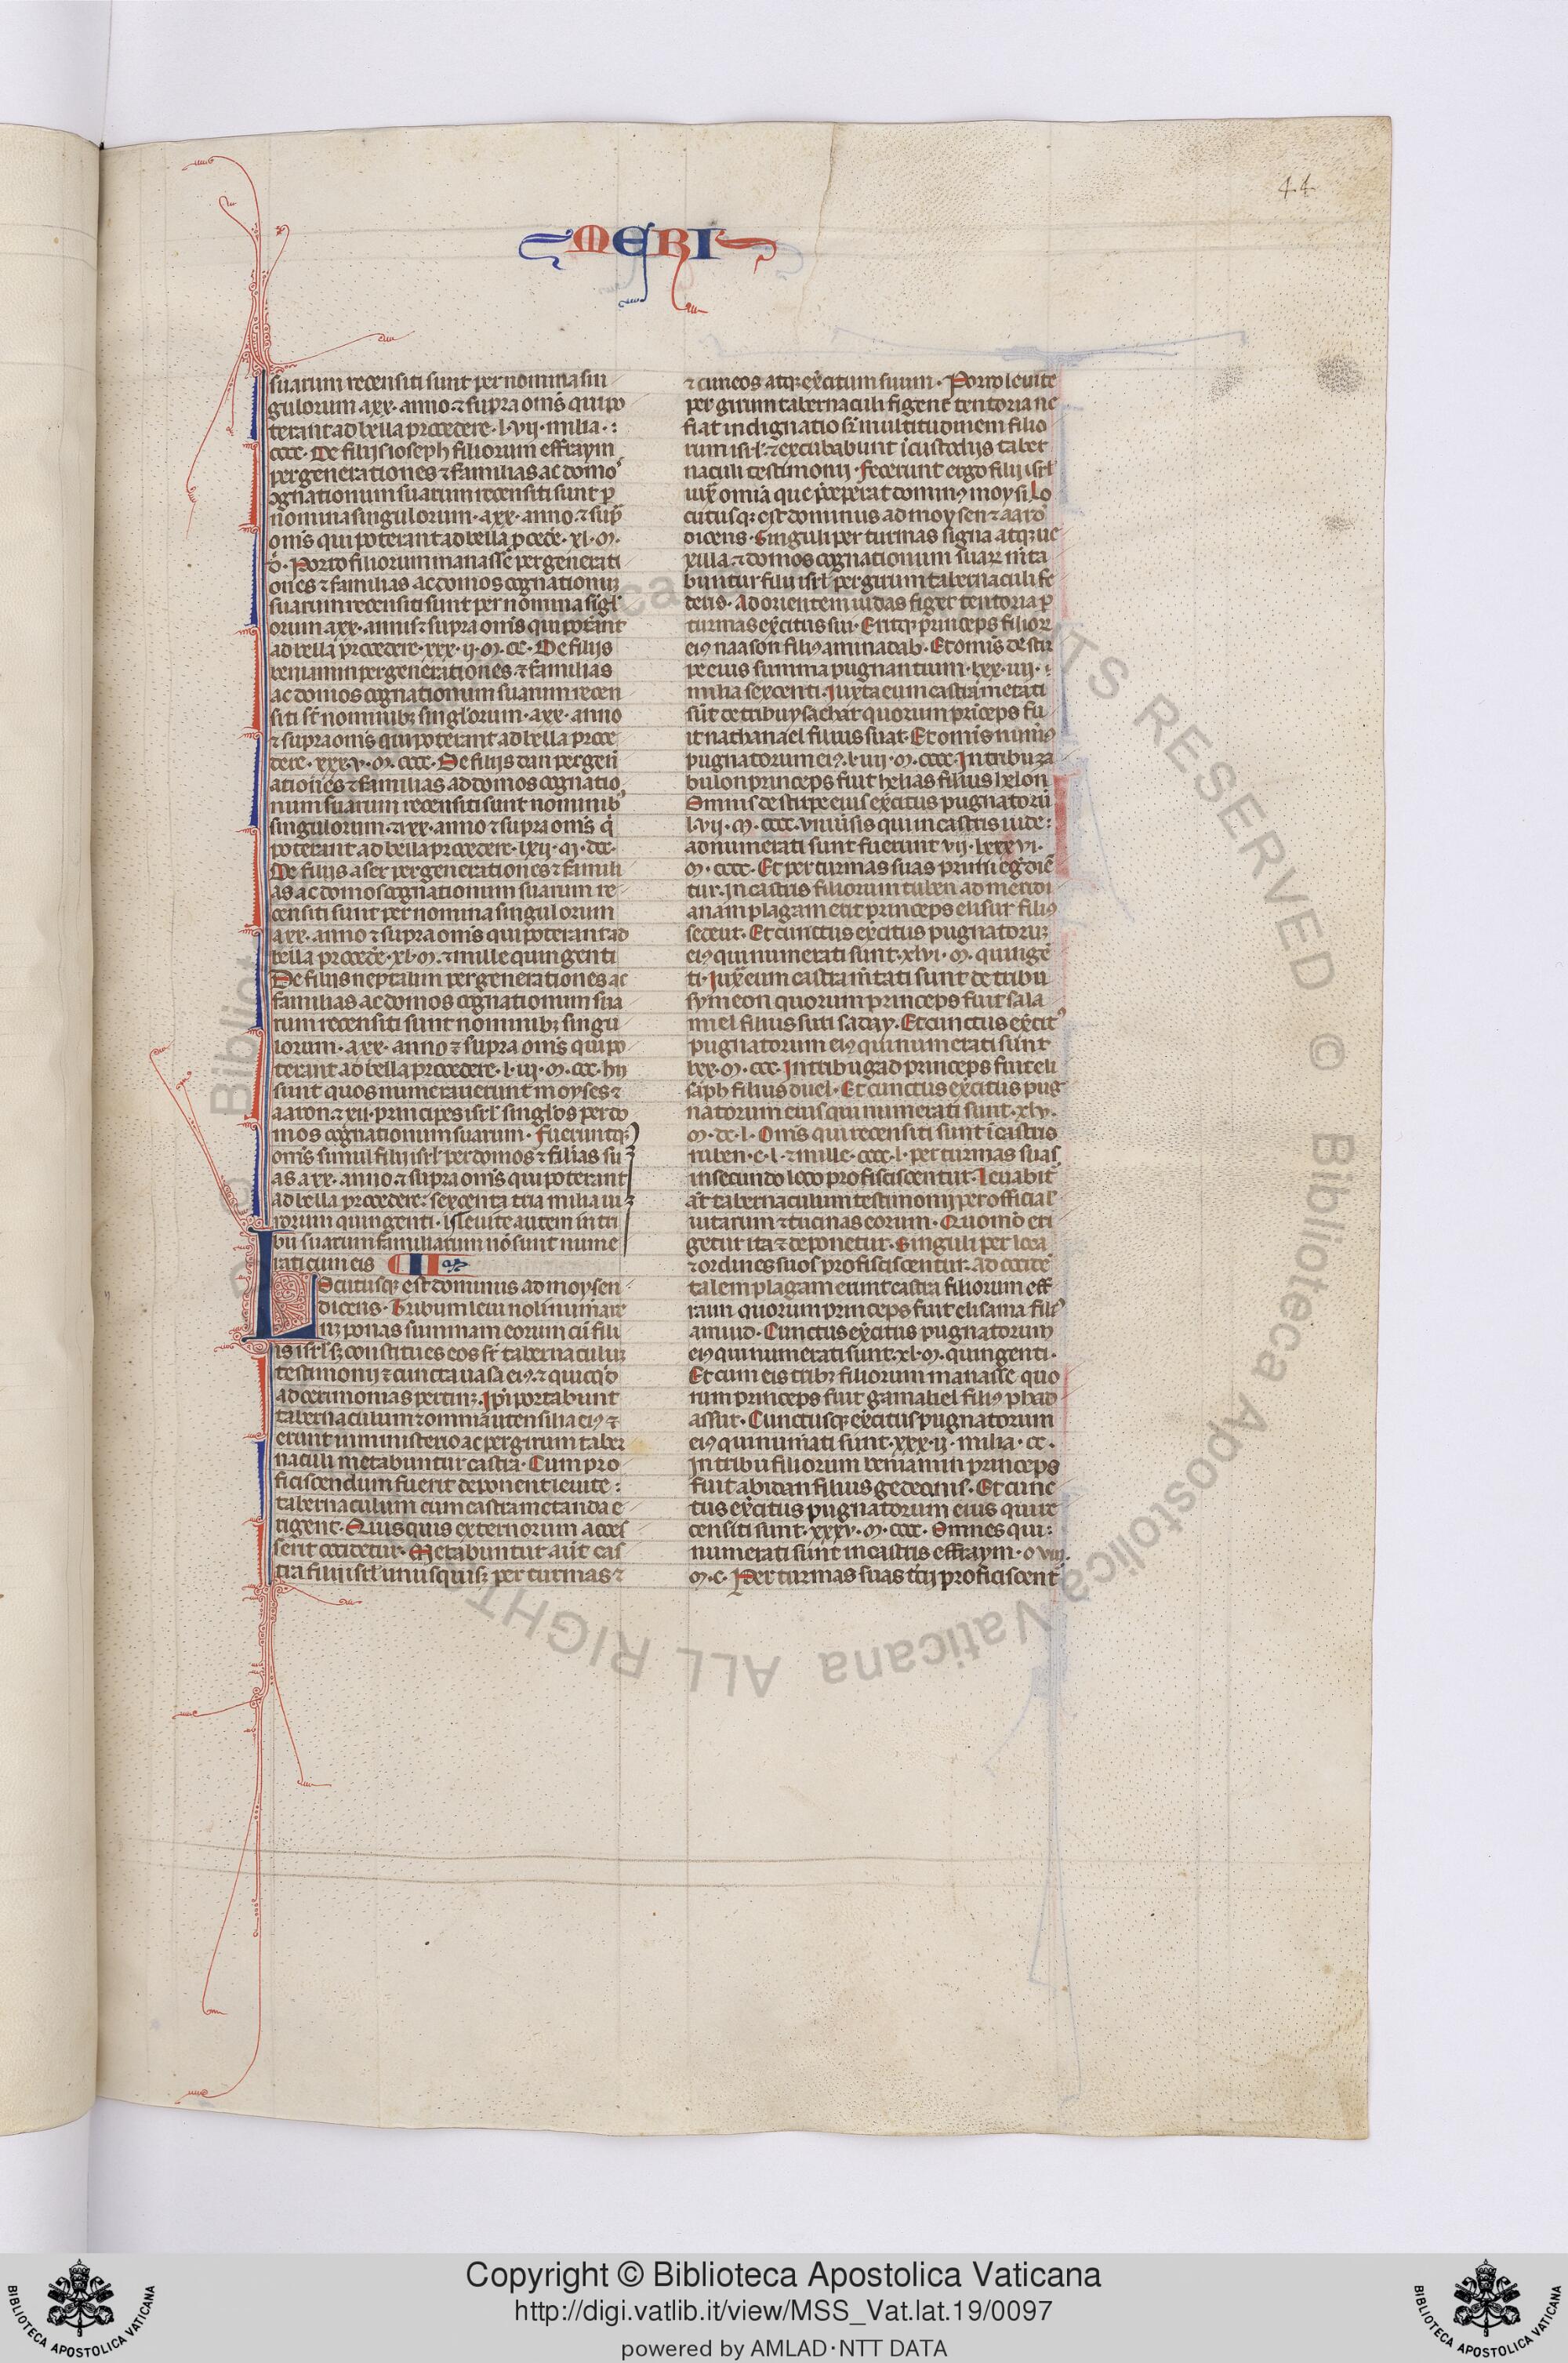 44
MERI
suarum recensiti sunt per nomina sin
gulorum a xx· anno ⁊ supra om̄s qui po
terant ad bella procedere· l·vij· milia·:
cccc· De filijs ioseph filiorum effraym
per generationes ⁊ familias ac domoˢ
ꝯgnationum suarum recensiti sunt ꝑ
nomina singulorum· a xx· anno ⁊ supͣ
om̄s qui poterant ad bella ꝓcedē· xl· ꝳ·
ꝺ̄· Porro filiorum manasse per generati
ones ⁊ familias ac domos cognationuꝫ
suarum recensiti sunt per nomina singl'
orum a xx· annis ⁊ supra om̄s qui poterant
ad bella procedere· xxx·ij· ꝳ· cc· De filijs
beniamin per generationes ⁊ familias
ac domos cognationum suarum recen
siti sūt nominibꝫ singl'orum· a xx· anno
⁊ supra om̄s qui poterant ad bella proce
dere· xxx·v· ꝳ· cccc· De filijs dan per gen̄
ationes ⁊ familias ad domos cognatio
num suarum recensiti sunt nominibꝰ
singulorum· a xx· anno ⁊ supra om̄s qͥ
poterant ad bella procedere· lxij· ꝳ· dcc·
De filijs aser per generationes ⁊ famili
as ac domos cognationum suarum re
censiti sunt per nomina singulorum
a xx· anno ⁊ supra om̄s qui poterant ad
bella procedē· xl· ꝳ· ⁊ mille quingenti
De filijs neptalim per generationes ac
familias ac domos cognationum sua
rum recensiti sunt nominibꝫ singu
lorum· a xx· anno ⁊ supra om̄s qui po
terant ad bella procedere· l·iij· ꝳ· ccc· hij
sunt quos numerauerunt moyses ⁊
aaron ⁊ xij· principes isrl' singl'os per do
mos cognationum suarum· fueruntqꝫ
om̄s simul filij isrl' per domos ⁊ filias su
as a xx· anno ⁊ supra om̄s qui poterant
ad bella procedere· sexcenta tria milia ui
rorum quingenti· l· leuite autem in tri
bu suarum familiarum nō sunt nume
rati cum eis II
Locutusqꝫ est dominus ad moysen
dicens· Tribum leui noli num̄are
nꝫ ponas summam eorum cū fili
is isrl' sꝫ constitues eos sr̄ tabernaculuꝫ
testimonij ⁊ cuncta uasa eiꝰ· ⁊ quicqͥd
ad cerimonias pertinꝫ· Ip̄i portabunt
tabernaculum ⁊ omnia utensilia eiꝰ ⁊
erunt in ministerio ac per girum taber
naculi metabuntur castra· Cum pro
ficiscendum fuerit deponent leuite:
tabernaculum cum castrametanda e
rigent· Quisquis externorum acces
serit occidetur· Metabuntur aūt cas
tra filij isrl' unusquisqꝫ per turmas ⁊
⁊ cuneos atqꝫ exc̄itum suum· Porro leuite
per girum tabernaculi figent tentoria ne
fiat indignatio sr̄ multitudinem filio
rum isrl'· ⁊ excubabunt ī custodijs taber
naculi testimonij· fecerunt ergo filij isrl'
iuxͣ omnia que p̄ceperat dominꝰ moysi Lo
cutusqꝫ est dominus ad moysen ⁊ aarō
dicens· Singuli per turmas signa atqꝫ ue
xilla· ⁊ domos cognationum suaꝝ m̄ta
buntur filij isrl' per girum tabernaculi fe
deris· Ad orientem iudas figet tentoria ꝑ
turmas exc̄itus sui· Eritqꝫ princeps filioꝝ
eiꝰ naason filiꝰ aminadab· Et omis de stir
pe eius summa pugnantium· lxx·iiij·
milia sexcenti· Iuxta eum castra metati
sūt de tribu ysachar quorum princeps fu
it nathanael filius suar· Et om̄is num̄ꝰ
pugnatorum eiꝰ· l·iiij· ꝳ· cccc· In tribu za
bulon princeps fuit helias filius helon
Omnis de stirpe eius exc̄itus pugnatorū
l·vij· ꝳ· cccc· vniu̇si qui in castris iude:
adnumerati sunt fuerunt vij· lxxxvi·
ꝳ· cccc· Et per turmas suas primi egᵉdiē
tur· In castris filiorum ruben ad meridi
anam plagam erit princeps elisur filiꝰ
sedeur· Et cunctus exc̄itus pugnatoruꝫ
eiꝰ qui numerati sunt· xlvi· ꝳ· quīgē
ti· Iuxͣ eum castra m̄tati sunt de tribu
symeon quorum princeps fuit sala
miel filius suri saday· Et cunctus exc̄itꝰ
pugnatorum eiꝰ qui numerati sunt
lxx· ꝳ· ccc· In tribu gad princeps fuit eli
saph filius duel· Et cunctus exc̄itus pug
natorum eius qui numerati sunt· xlv·
ꝳ· dc·l· Om̄s qui recensiti sunt ī castris
ruben· c·l· ⁊ mille· cccc·l· per turmas suas
in secundo loco proficiscentur· Leuabit
aūt tabernaculum testimonij per official'
iutarum ⁊ turmas eorum· Quomō eri
getur ita ⁊ deponetur· Singuli per loca
⁊ ordines suos proficiscentur· ad occidē
talem plagam erunt castra filiorum eff
raim quorum princeps fuit elisama filiꝰ
amiud· Cunctus exc̄itus pugnatorum
eiꝰ qui numerati sunt· xl· ꝳ· quingenti·
Et cum eis tribꝫ filiorum manasse quo
rum princeps fuit gamaliel filiꝰ phad
assur· Cunctusqꝫ exc̄itus pugnatorum
eiꝰ qui num̄ati sunt· xxx·ij· milia· cc·
In tribu filiorum beniamin princeps
fuit abidan filius gedeonis· Et cunc
tus exc̄itus pugnatorum eius qui re
censiti sunt· xxxv· ꝳ· cccc· Omnes qui:
numerati sunt in castris effraym· c viij·
ꝳ· c· Per turmas suas tc̄ij proficiscent᷑
Copyright © Biblioteca Apostolica Vaticana
http://digi.vatlib.it/view/MSS_Vat.lat.19/0097
powered by AMLAD·NTT DATA
BIBLIOTECA APOSTOLICA VATICANA
BIBLIOTECA APOSTOLICA VATICANA
© Biblioteca Apostolica Vaticana ALL RIGHTS RESERVED